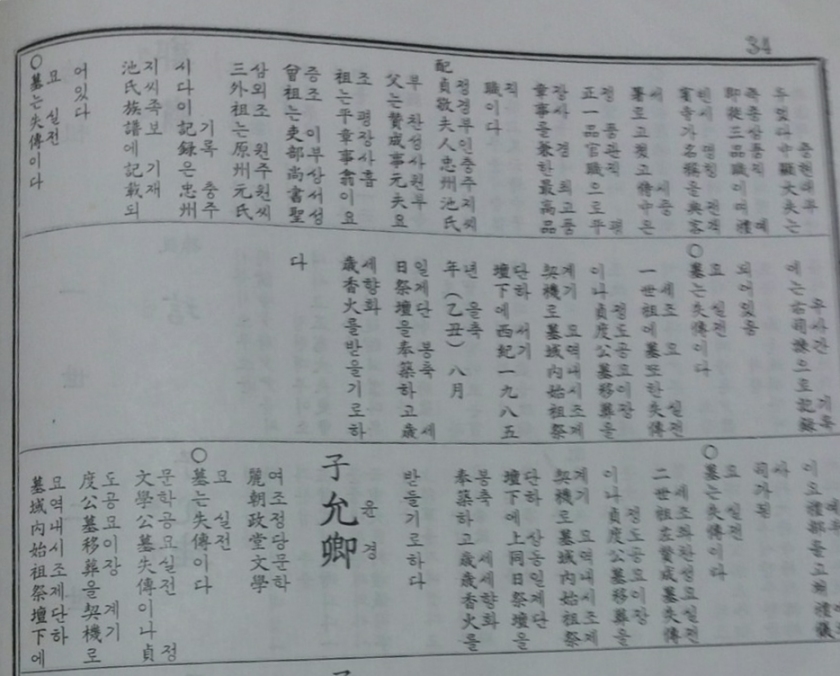 34
중현대부
中顯大夫는
品職이며禮
빈시 명칭 전객
賓寺가名稱을典客
정 품관직 평
正一品官職으로平
장사 경 최고품
章事를兼한最高品
직
職이다
정경부인충주지씨
配貞敬夫人忠州池氏
부 찬성사원부
父는贊成事元夫요
조 평장사흡
祖는平章事翕이요
증조 이부상서성
曾祖는吏部尚書聖
삼외조 원주원씨
三外祖는原州元氏
기록 충주
시다이記録은忠州
지씨족보 기재
池氏族譜에記載되
어있다
묘 실전
○墓는失傳이다
기록
으로記録
되어있음
묘 실전
○墓는失傳이다
세조 묘 실전
一世祖에墓또한失傳
정도공묘이장
이나貞度公墓移葬을
계기 묘역내시조제
契機로墓域内始祖祭
단하 서기
壇下에西紀一九八五
년 을축
年(乙丑)八月
일제단 봉축 세
日祭壇을奉築하고歲
세향화
歲香火를받들기로하
다
묘 실전
○墓는失傳이다
세조좌찬성묘실전
二世祖左贊成墓失傳
정도공묘이장
이나貞度公墓移葬을
계기 묘역내시조제
契機로墓域内始祖祭
단하 상동일제단
壇下에上同日祭壇을
봉축 세세향화
奉築하고歲歲香火를
받들기로하다
윤경
子允卿
여조정당문학
麗朝政堂文學
묘 실전
○墓는失傳이다
문학공묘실전 정
文學公墓失傳이나貞
도공묘이장 계기
度公墓移葬을契機로
묘역내시조제단하
墓域内始祖祭壇下에